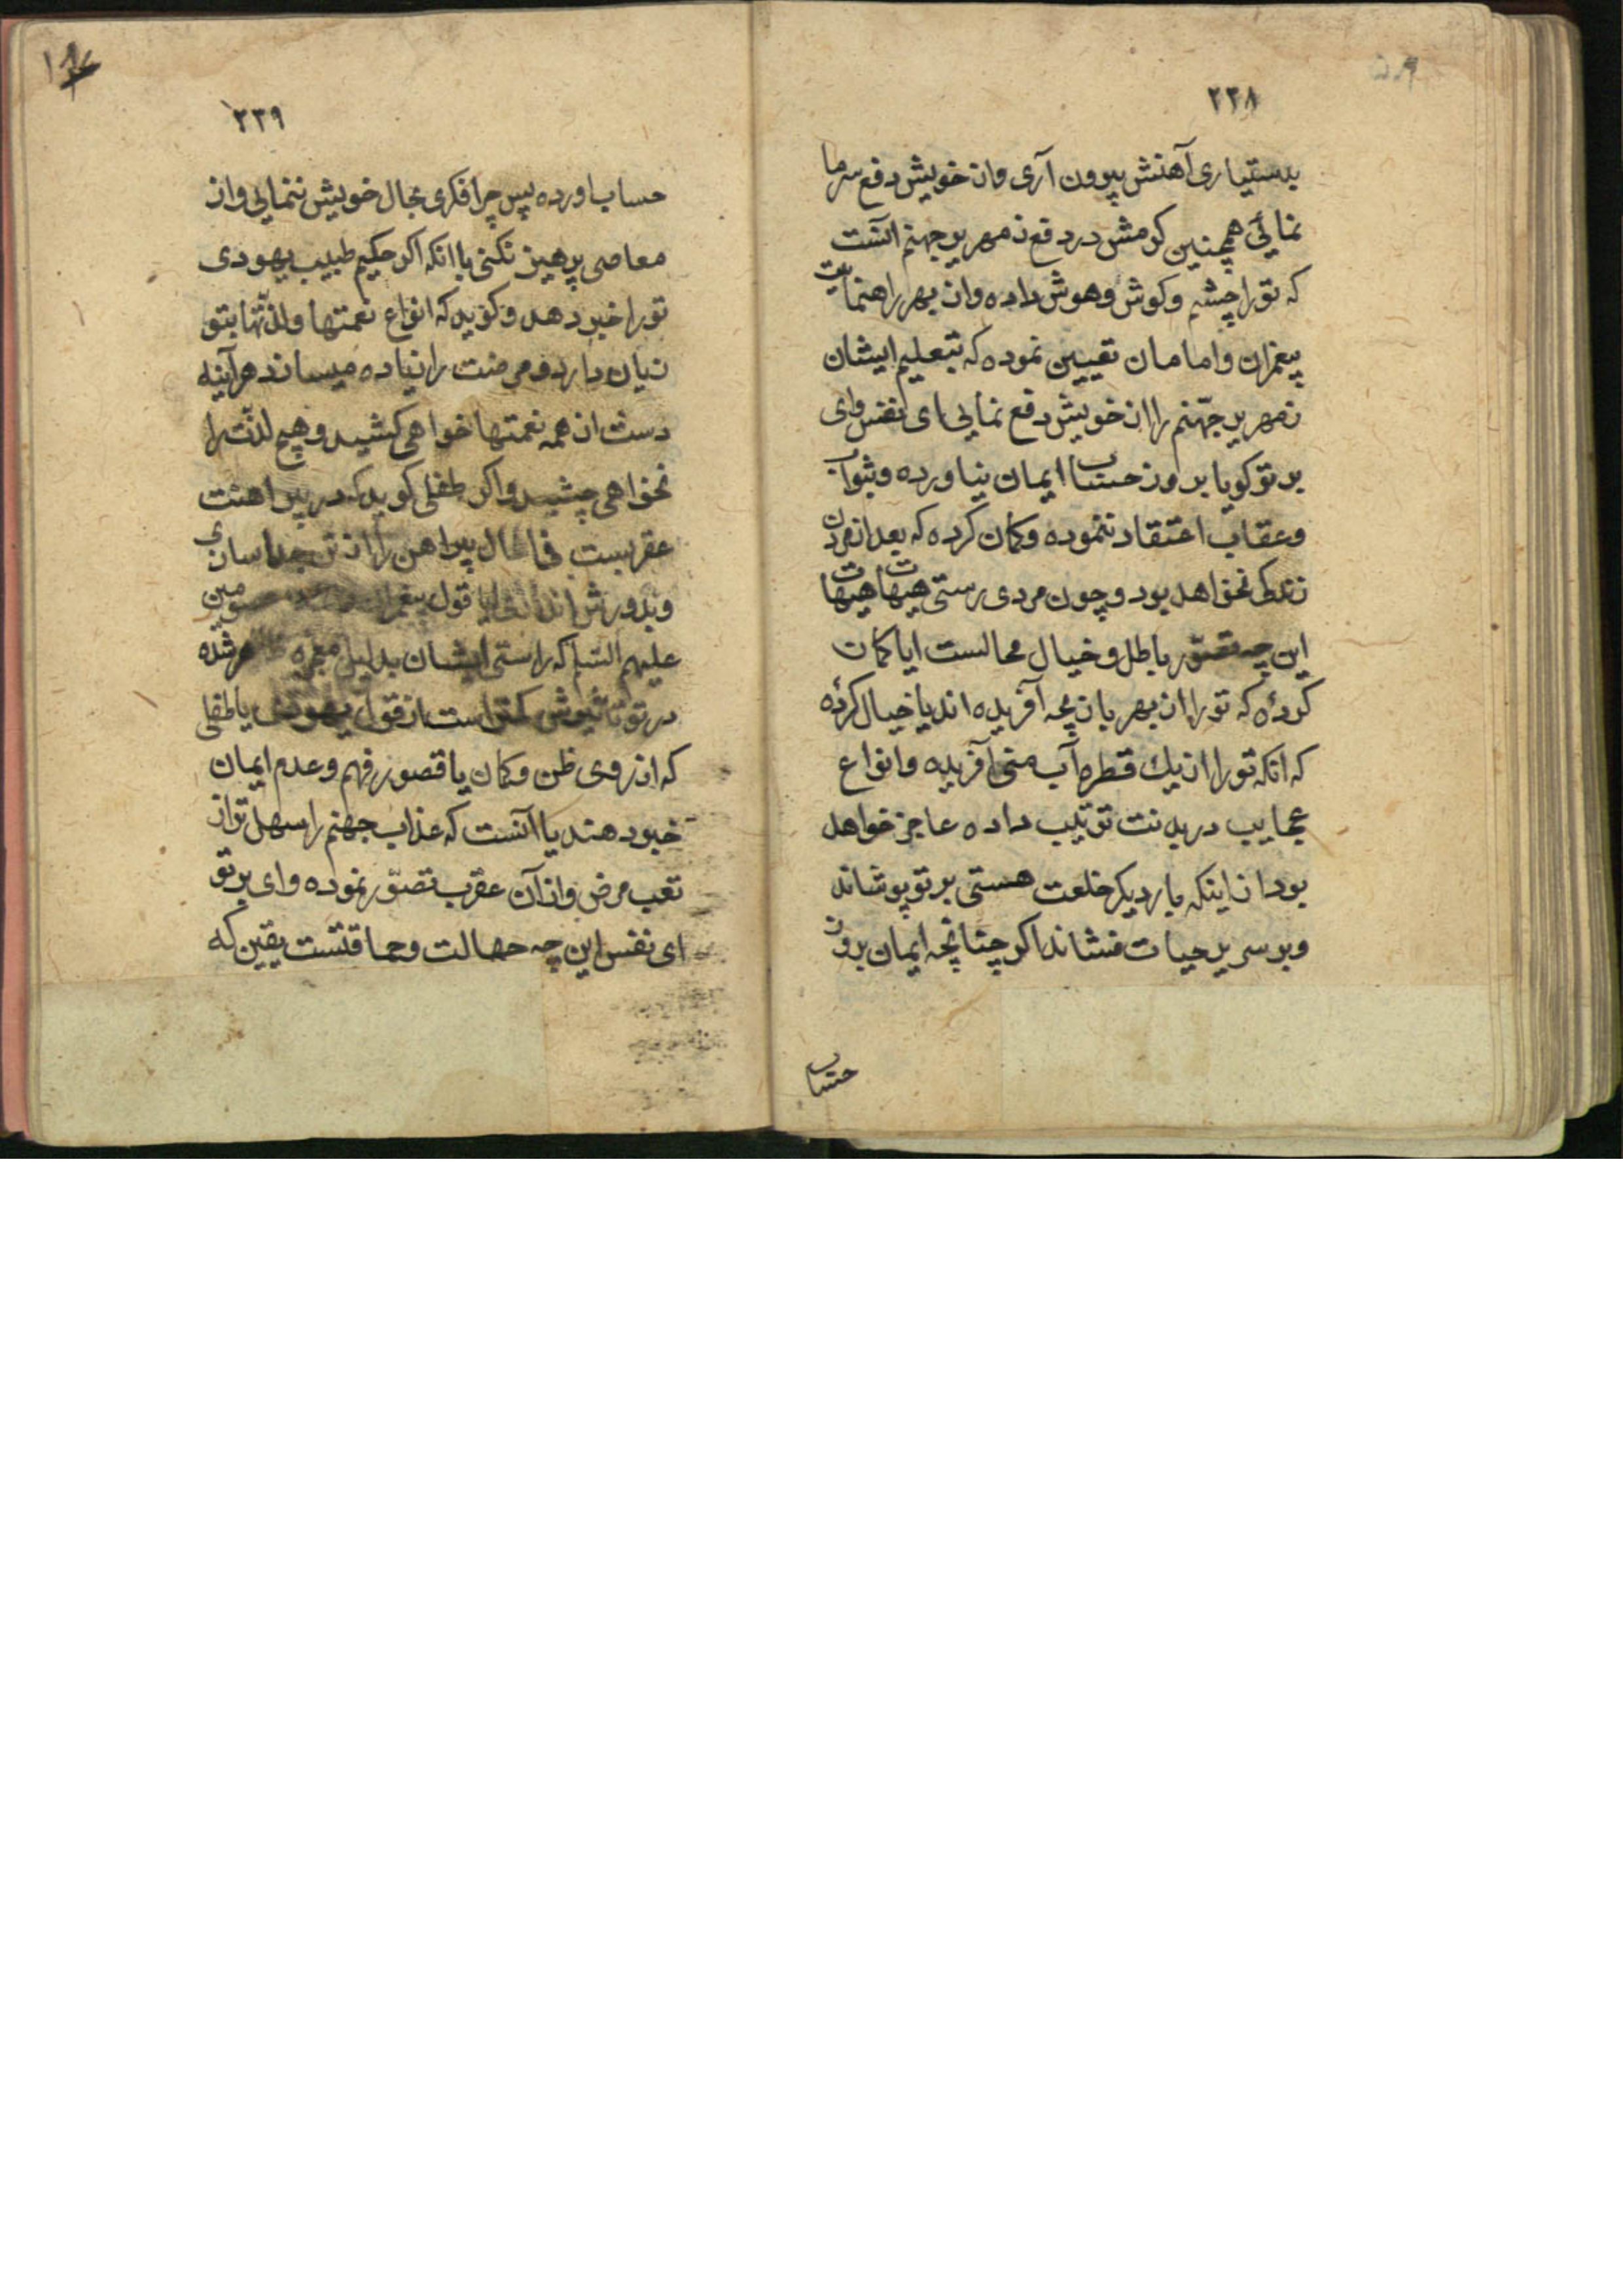 ۲۳۸
بدستیاری آهنش بیرون آری واز خویش دفع سرما
نمائی همچنین کرمش در دفع زمهریر جهنم آنست
که تورا چشم وکوش وهوش داده واز بهر راهنمائیت
پیغمران وامامان تعیین نموده که بتعلیم ایشان
زمهریر جهّنم را از خویش دفع نمایی ای نفس وای
بر تو کویا بروز حساب ایمان نیاورده وبثواب
وعقاب اعتقاد ننموده وکمان کرده که بعد از مردن
زندکی نخواهد بود وچون مردی رستی هیهات هیهات
این چه تصوّر باطل وخیال محالست ایا کمان
کردهٔ که تورا از بهر بازیچه آفریده اند یا خیال کردهٔ
که انکه تورا از یك قطره آب منی آفریده وانواع
عجایب در بدنت ترتیب داده عاجز خواهد
بود از اینکه بار دیکر خلعت هستی بر تو پوشاند
وبر سریر حیات نشاند اکر چنانچه ایمان بروز
حساب
۲۳۹
حساب اورده پس چرا فکری بحال خویش ننمایی واز
معاصی پرهیز نکنی با انکه اکر حکیم طبیب یهودی
تورا خبر دهد وکوید که انواع نعمتها ولذّتها بتو
زیان دارد ومرضت را زیاده میساند هرآینه
دست از همه نعمتها خواهی کشید وهیچ لذّت را
نخواهی چشید واکر طفلی کوید که در پیراهنت
عقربیست فی الحال پیراهن را از تن جدا سازی
وبدورش اندازی ایا قول پیغمران معصومین
علیهم السّلم که راستی ایشان بدلیل معجزه شده
در تو تاثیرش کمتر است از قول یهودی یا طفلی
که از روی ظن وکمان یا قصور فهم وعدم ایمان
خبر دهند یا آنست که عذاب جهنم را سهل تر از
تعب مرض واز آن عقرب تصوّر نموده وای بر تو
ای نفس این چه جهالت وحماقتست یقین که